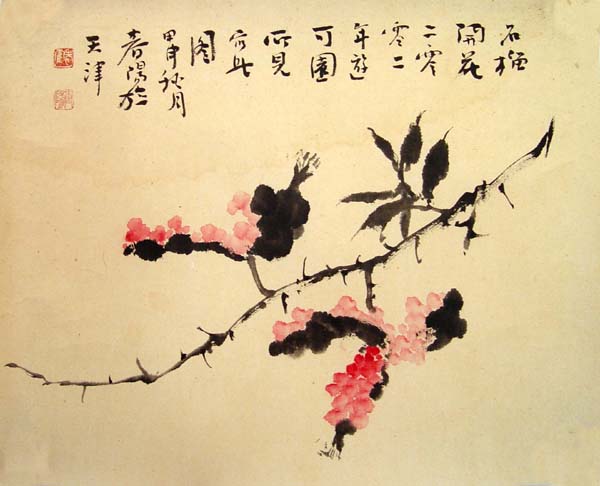 石榴
開花
二零
零二
年遊
可園
所見
寫此
图
甲申秋月
春陽於
天津